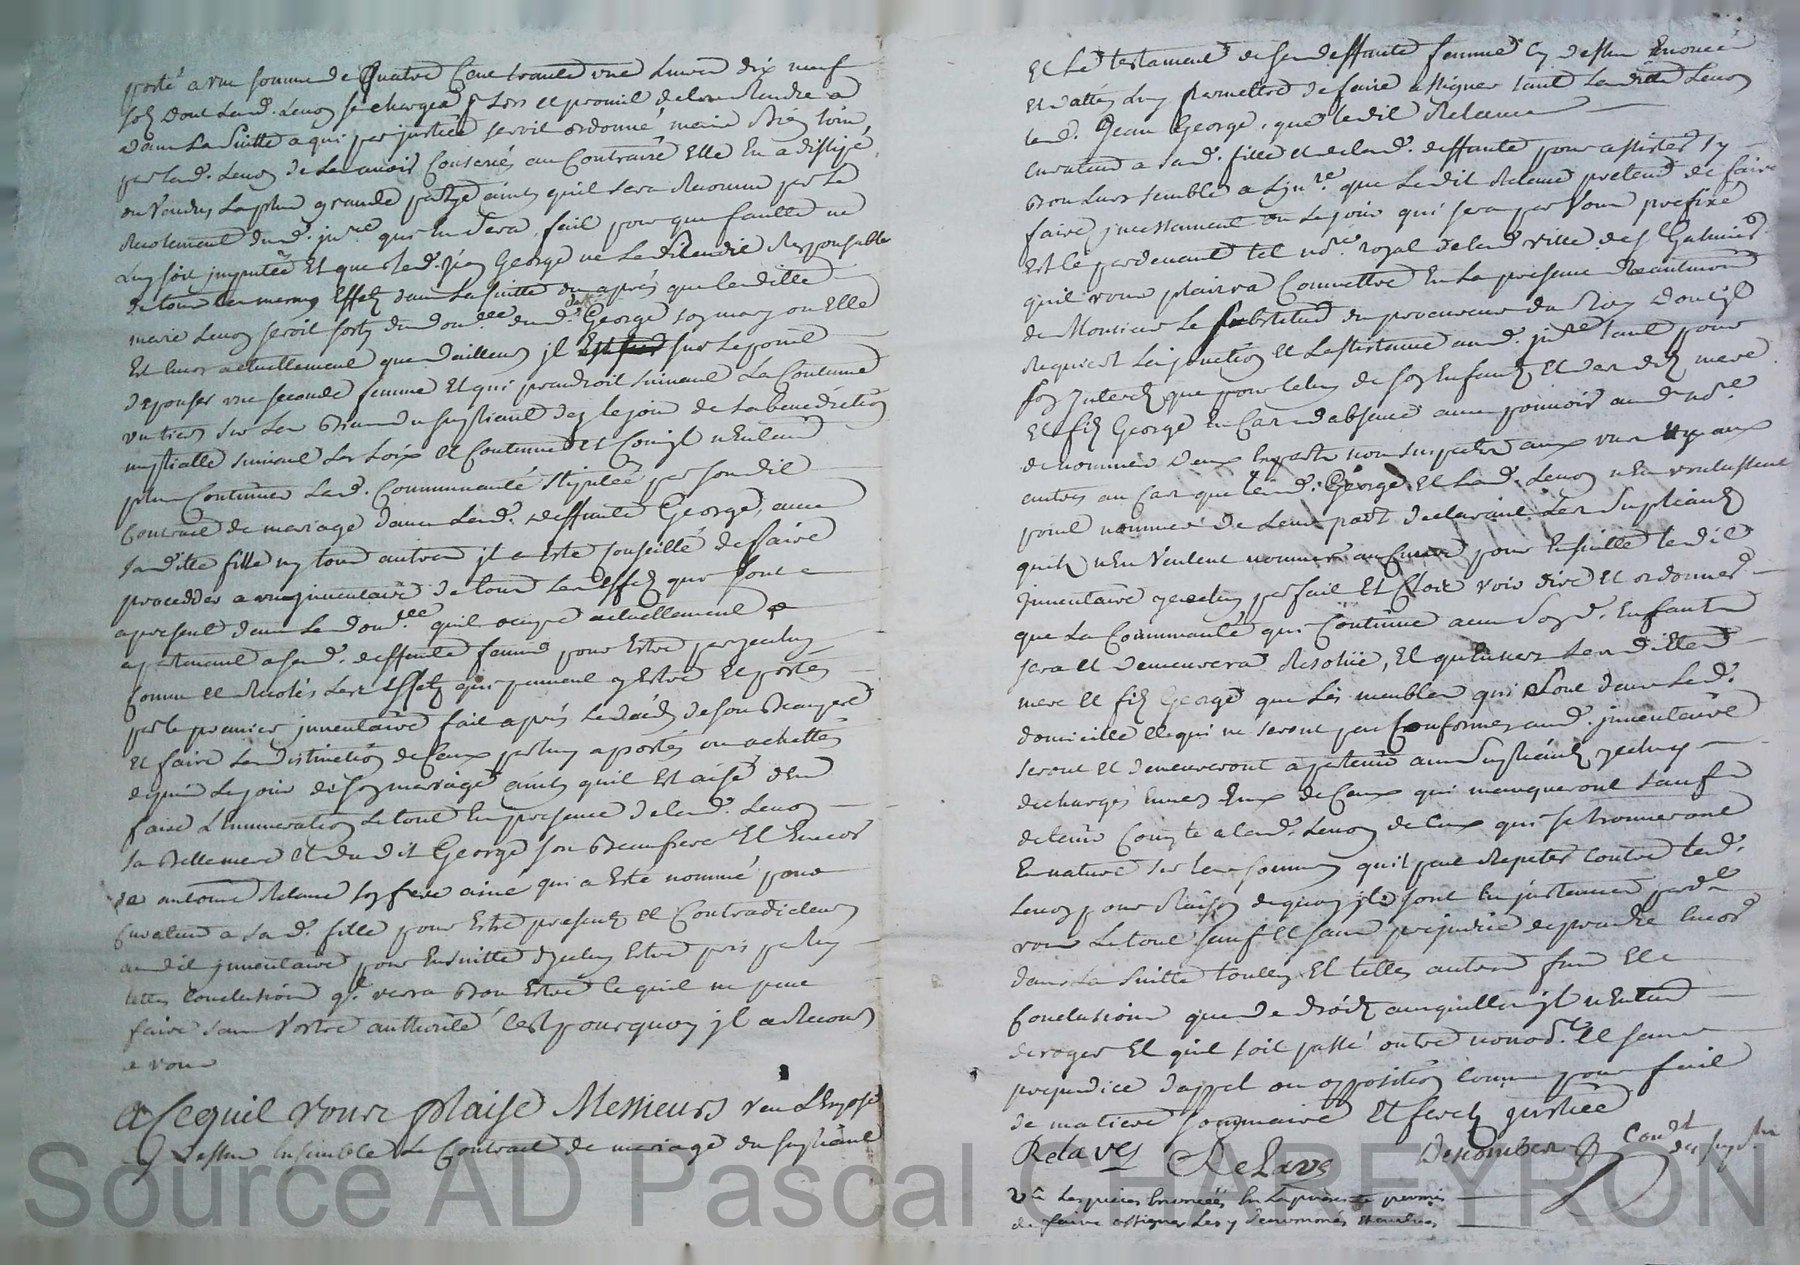 porté a une somme de Quatre Cent trante une Livres dix neuf
sols dont lad. Lenoy se chargea p. lors et promit de les Rendre a
dans La Suitte a qui par justice seroit ordonné mais Bien loin
par lad. Lenoy de les avoir Conservés au Contraire Elle En a distipé
ou Vendus La plus grande partye ainsy quil sera Reconnu par Le
Recolement dud. jnre qui En sera fait pour que faulte ne
Luy soit jmputée Et que led. Jean George ne Le dit Rendit Responsable
de tous les mesmes Effets dans La suitte ou aprés que lenditte
marie Lenoy seroit sorty du domlle dud. George son mary ou Elle
Est Encor actuellement que dailleurs jl sur Le point
depouser une seconde femme Et qui prendroit suivant La Coutume
un tiers sur Les Biens du supliant dez le jour de la benediction
nuptialle suivant Les Loix et Coutumes Et Comme jl nentend
plus Continuer Lad. Communauté stipulée par son dit
Contrat de mariage dans lad. deffunte George, avec
sa ditte fille ny tous autres jl a esté Conseillé de faire
proceder a un jnventaire de tous Les Effets qui sont
a present dans Le domlle quil ocupe actuellement
apartenant a sad. deffunte femme pour Estre par jceluy
Connu et Recolés Les Effets qui peuvent y Estre Et portés
par le premier jnventaire fait aprés Le decés de son Beaupere
Et faire La distinction de Ceux par luy aportés ou achettés
depuis Le jour de son mariage ainsy quil Est aisé den
faire Lenumeration Le tout En presence de lad. Lenoy
sa Bellemere et dudit George son Beaufrere Et Encor
de antoine Relave son frere ainé qui a Esté nommé pour
Curateur a sad. fille pour Estre presents et Contradicteurs
audit jnventaire pour Ensuitte dyceluy Estre pris par luy
telles Conclusions ql verra Bon Estre Ce quil ne peut
faire sans Vostre authorité Cest pourquoy jl a Recours
a vous
A Ce quil vous plaise Messieurs veu LExposé
Cy dessus Ensemble Le Contrat de mariage du supliant
Et Le testament de sa deffunte femme Cy dessus Enoncé
Et dattés Luy permettre de faire assigner tant La ditte Lenoy
led. Jean George, que ledit Relave
Curateur a sad. fille et de lad. deffunte pour assister sy
Bon Leur semble a Ljnre que Ledit Relave pretend de faire
faire jncessament Au Le jour qui sera par Vous prefixé
Et ce pardevant tel nore royal de lad. ville de St Galmier
quil vous plaira Commettre En La presence
de Monsieur Le substitud du procureur du Roy dont jl
Requiert Lejonction Et Lassistance aud. jnre tant pour
son Interest que pour Celuy de son Enfant Et des dts mere
Et fils George En Cas dabsence avec pouvoir aud. nore
de nommer deux Experts non suspects aux uns ny aux
autres au Cas que led. George Et Lad. Lenoy nEn voulussent
point nommer de Leur part declarant Les Supliants
quils nEn Veulent nommer aucun pour Ensuitte ledit
jnventaire yceluy parfait Et Clos voir dire Et ordonner
que La Communauté qui Continue avec Sond. Enfant
sera Et demeurera Resolüe, Et quEnvers Les dittes
mere Et fils George que Les meubles qui sont dans Led.
domicille Et qui ne seront pas Conformes aud. jnventaire
seront Et demeureront apartenir aux Supliants yceluy
dechargés Envers Eux de Ceux qui manqueront sauf
de tenir Compte a lad. Lenoy de Ceux qui se trouveront
En nature sur les sommes quil peut Repeter Contre lad.
Lenoy pour Raison de quoy jls sont En jnstance pardt
vous Le tout sauf et sans prejudice de prendre Encor
dans La Suitte touttes Et telles autres fins Et
Conclusions que de droit auxquelles jl nEntend
deroger Et quil soit passé outre nonobt. Et sans
prejudice dappel ou opposition Comme pour fait
de matiere sommaire Et ferez justice
Relaves Relave Desombres Condt des supts
Vu Les pieces Enoncées En La presente permis
de faire assigner Les y denommés
Source AD Pascal CHAREYRON